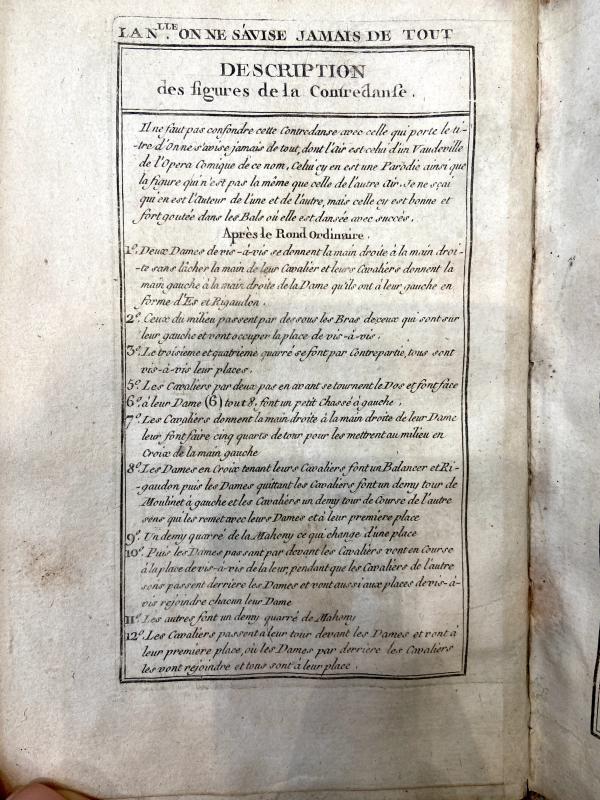 LA N.LLE ON NE S'AVISE JAMAIS DE TOUT
DESCRIPTION
des figures de la Contredanse.
Il ne faut pas confondre cette Contredanse avec celle qui porte le ti-
-tre d'On ne s'avise jamais de tout, dont l'air est celui d'un Vaudeville
de l'Opera Comique de ce nom. Celui cy en est une Parodie ainsi que
la figure qui n'est pas la même que celle de l'autre air. Je ne sçai
qui en est l'Auteur de l'une et de l'autre, mais celle cy est bonne et
fort goutée dans les Bals où elle est dansée avec succès.
Après le Rond Ordinaire.
1º. Deux Dames de vis-à-vis se donnent la main droite à la main droi-
-te sans lâcher la main de leur Cavalier et leurs Cavaliers donnent la
main gauche à la main droite de la Dame qu'ils ont à leur gauche en
forme d'Es et Rigaudon.
2º. Ceux du milieu passent par dessous les Bras de ceux qui sont sur
leur gauche et vont occuper la place de vis-à-vis.
3º. Le troisieme et quatrieme quarré se font par Contrepartie, tous sont
vis-à-vis leur places.
5º. Les Cavaliers par deux pas en avant se tournent le Dos et font face
6º. à leur Dame (6) tout 8. font un petit Chassé à gauche.
7º. Les Cavaliers donnent la main droite à la main droite de leur Dame
leur font faire cinq quarts de tour pour les mettrent au milieu en
Croix de la main gauche
8º. Les Dames en Croix tenant leurs Cavaliers font un Balancer et Ri-
-gaudon puis les Dames quittant les Cavaliers font un demy tour de
Moulinet à gauche et les Cavaliers un demy tour de Course de l'autre
sens qui les remet avec leurs Dames et à leur premiere place
9º. Un demy quarré de la Mahony ce qui change d'une place
10º. Puis les Dames passant par devant les Cavaliers vont en Course
à la place de vis-à-vis de la leur, pendant que les Cavaliers de l'autre
sens passent derriere les Dames et vont aussi aux places de vis-à-
vis rejoindre chacun leur Dame
11º. Les autres font un demy quarré de Mahony
12º. Les Cavaliers passent à leur tour devant les Dames et vont à
leur premiere place, où les Dames par derriere les Cavaliers
les vont rejoindre et tous sont à leur place.